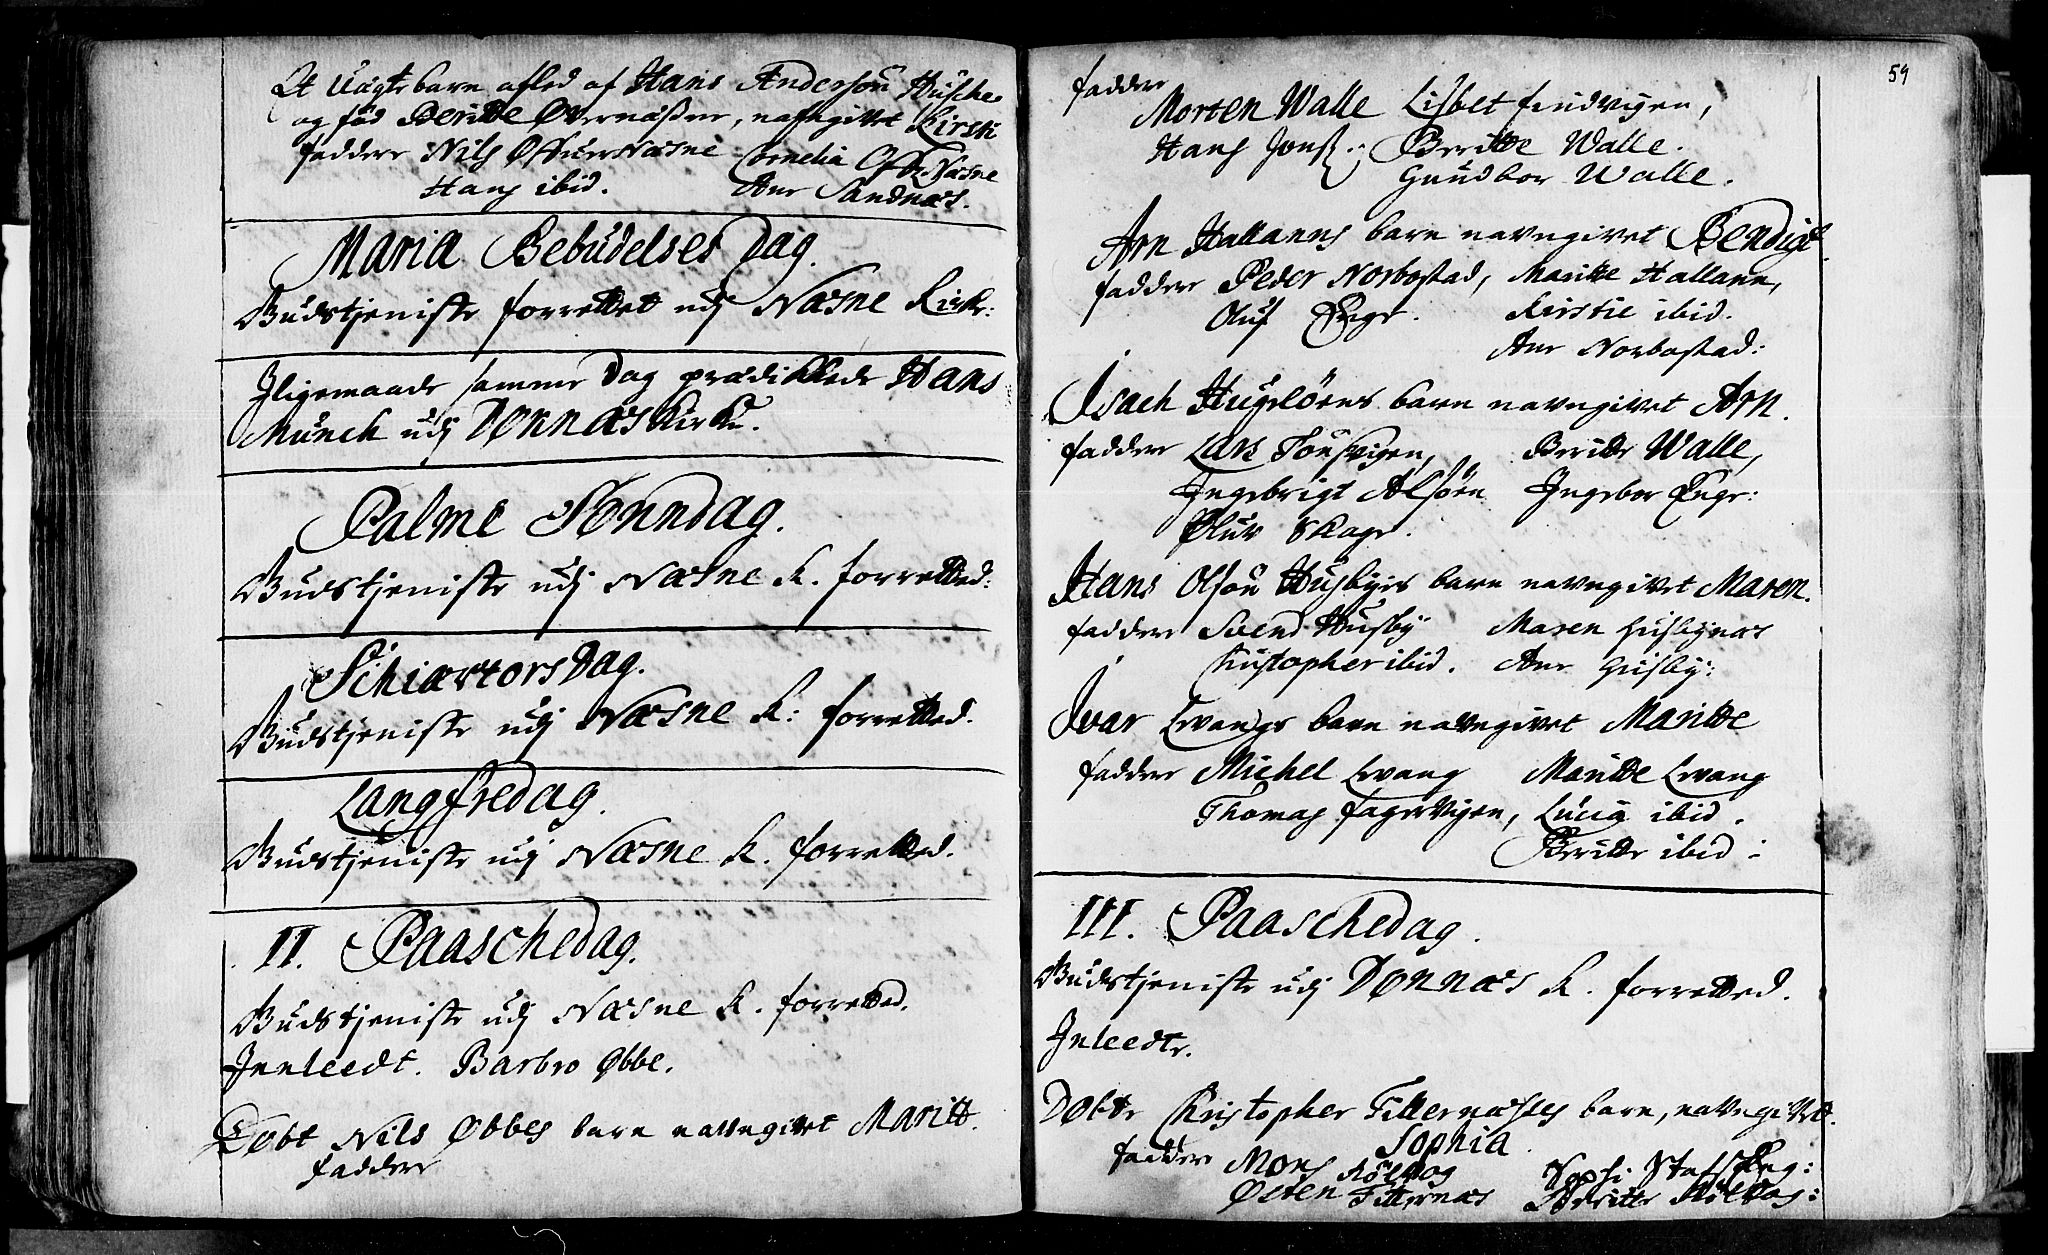 Et Uægte barn afled af Hans Andersøn Husche
og fød Beritte Øvernæsser, nafngivet Kirsti
faddere Nils Offuer Næsne Cornelia Off: Næsne
Hans ibid. Ane Sandnæs.
Maria Bebudelses Dag.
Gudstjeniste forrettet udj Næsne Kirke:
Jligemaade samme Dag prædikkede Hans
Munch udj Dønnæs Kirke.
Palme Sønndag.
Gudstjeniste udj Næsne K. forretted:
Schiærtorsdag.
Gudstjeniste udj Næsne K: forretted.
Langfredag.
Gudstjeniste udj Næsne K. forretted.
II. Paaschedag.
Gudstjeniste udj Næsne K. forretted.
Jnnleedt. Barbro Øbbe.
Døbt Nils Øbbes barn navngivet Maritt.
faddere
54
faddere
Morten Walle Lisbet findvigen,
Hans Jons: Beritte Walle.
Gundbor Walle.
Arn Hallanns barn navngivet Bendigt.
faddere Peder Norbostad, Maritte Hallann,
Oluf Enge. Kirstie ibid.
Ane Norbostad:
Isach Hugeløens barn navngivet Arn.
faddere Lars Tousvigen, Beritte Walle,
Ingebrigt Alsøen Ingebor Enge:
Oluv Skage.
Hans Olsøn Husbyes barn navngivet Maren.
faddere Svend Husby Maren Husbynæs
Christopher ibid. Ane Husby:
Ivar Levangs barn navngivet Maritte
faddere Michel Levang Maritte Levang
Thomas fagervigen, Lucia ibid.
Beritte ibid:
III. Paaschedag.
Gudstjeniste udj Dønnæs K. forretted.
Jnleedte.
Døbte Christopher Titternæsses barn, navngivett.
Sophia.
faddere Mons Kølhog Sophi
Østen Titternæs Beritte Kølhog: